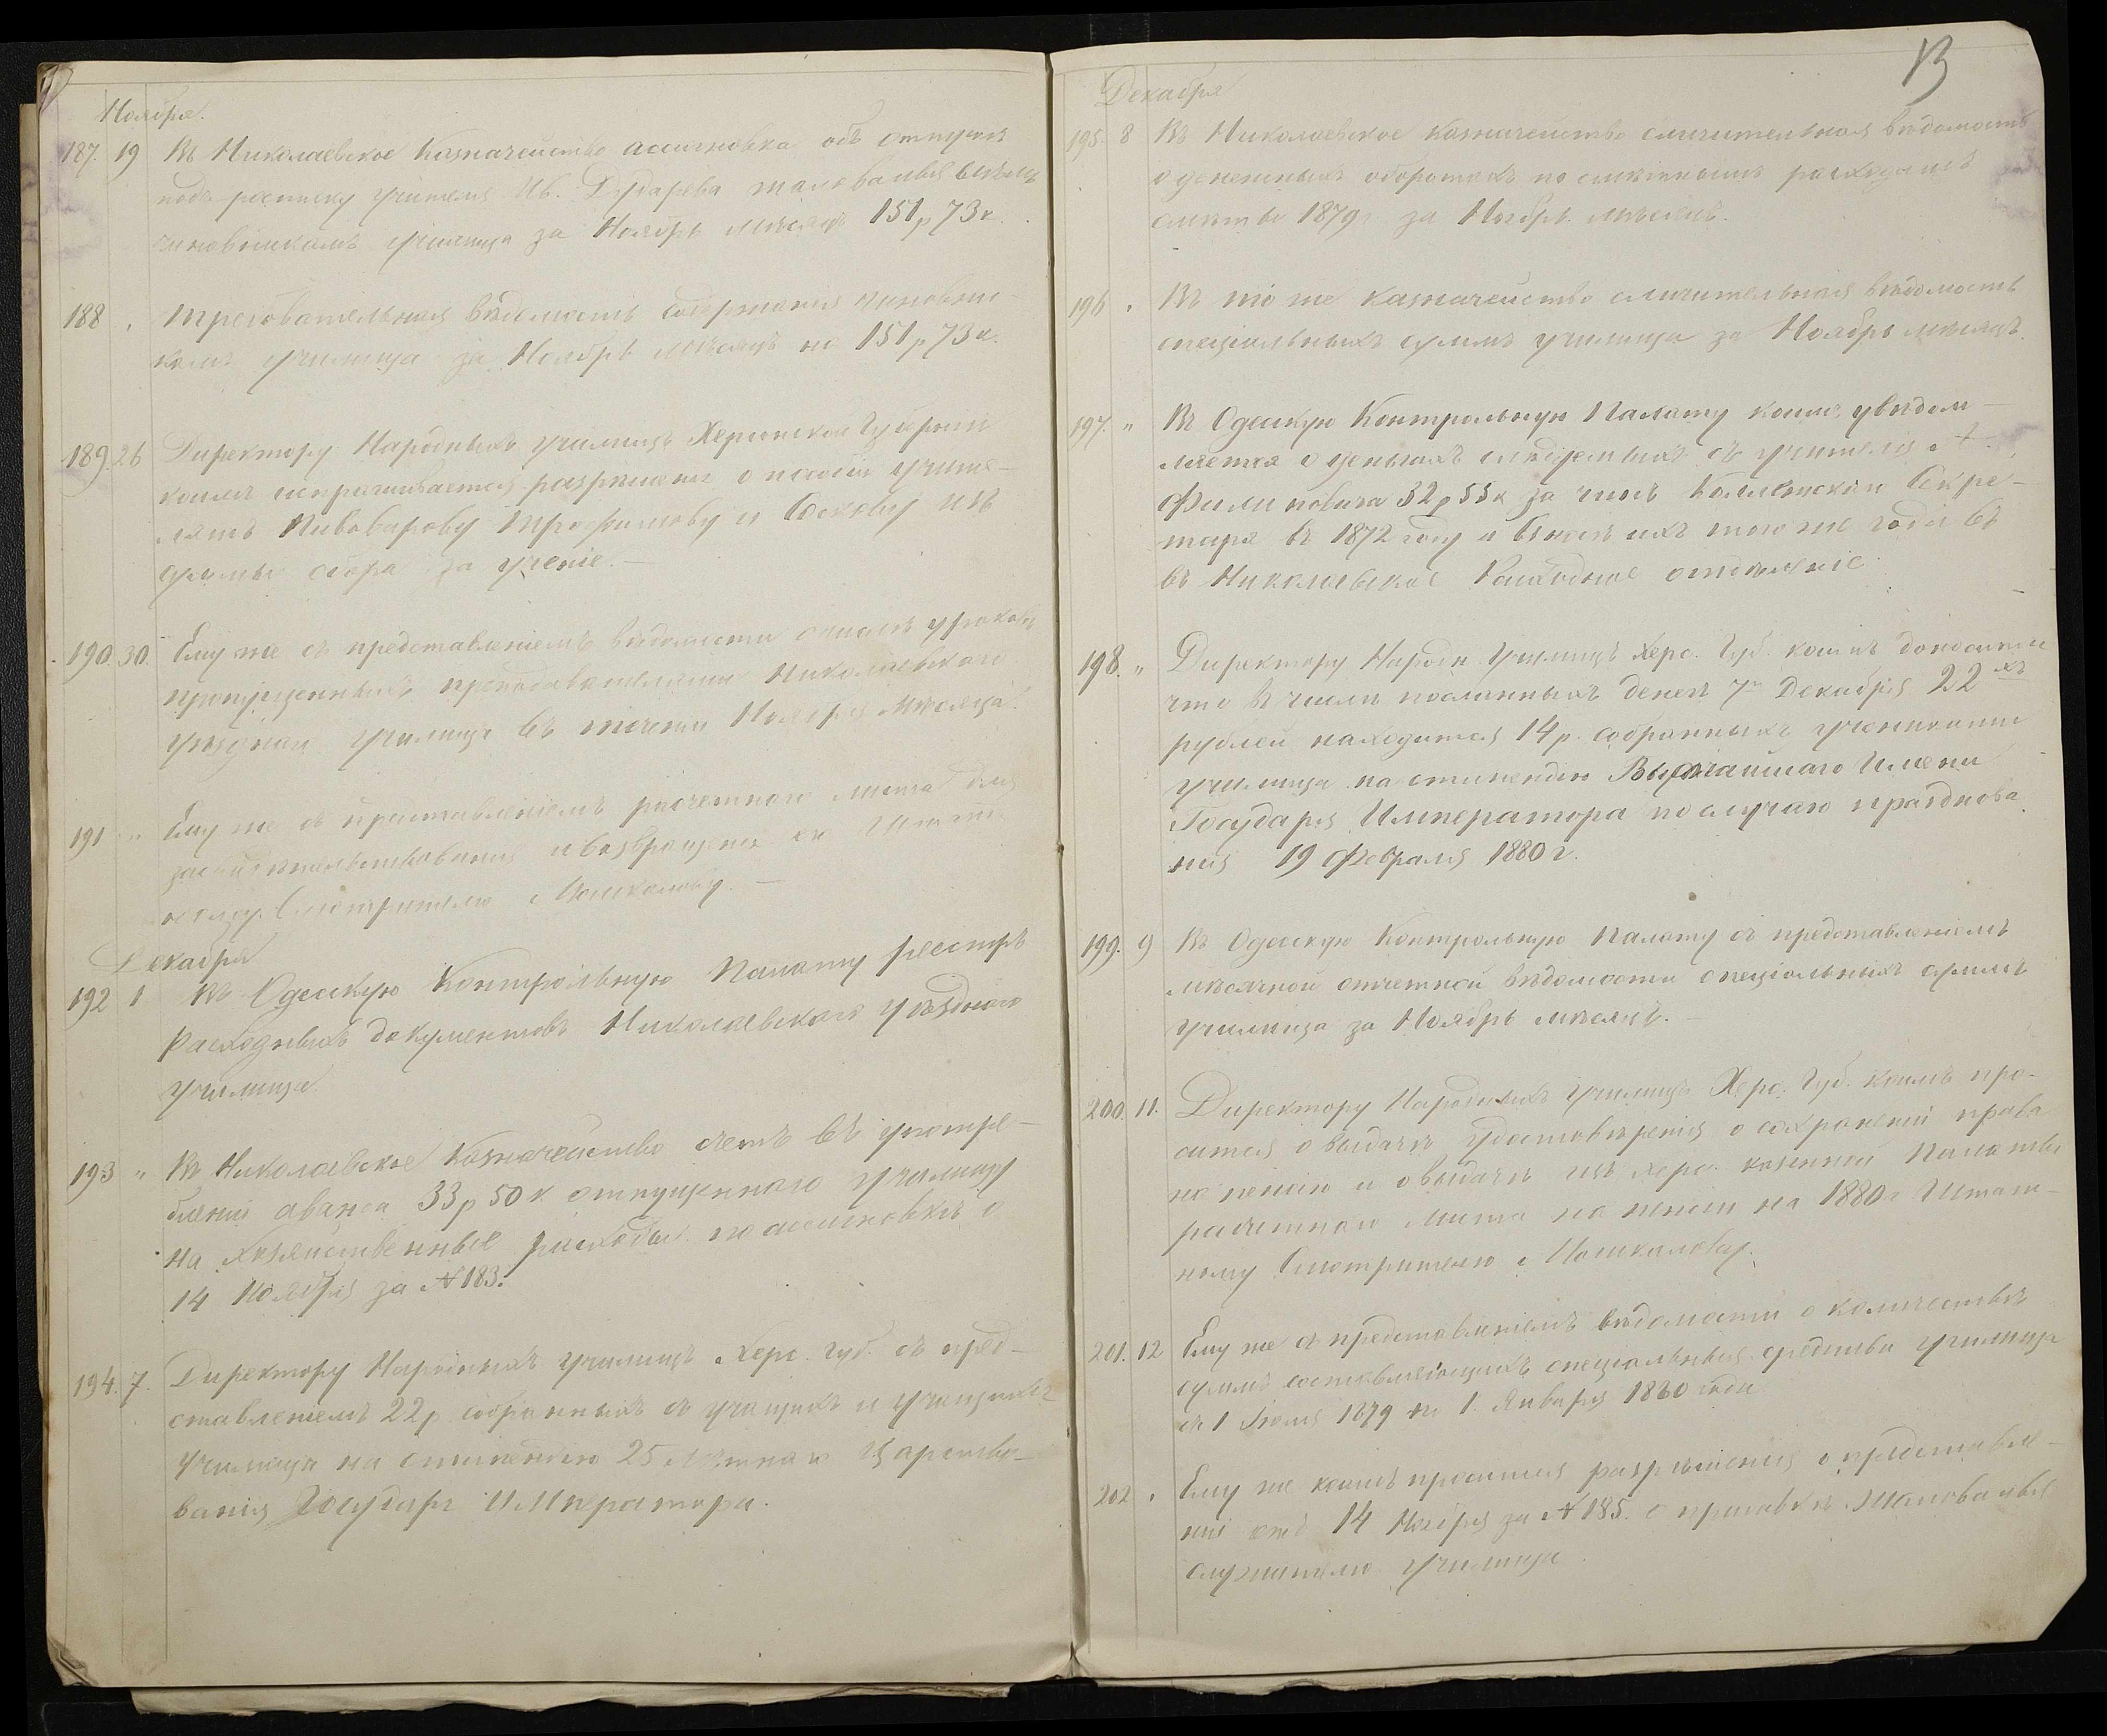 Ноября.
187. 19 Въ Николаевское Казначейство ассигновка объ отпускѣ
подъ росписку учителя Ив. Дударева жалованья всѣмъ
чиновникамъ училища за Ноябрь мѣсяцъ 151 р 73 к.
188 Требовательная вѣдомость содержанія чиновни-
камъ училища за Ноябрь мѣсяцъ на 151 р 73 к.
189. 26 Директору Народныхъ училищъ Херсонской Губерніи
коимъ испрашивается разрѣшеніе о пособіи учите-
лямъ Пивоварову Трофимову и изъ
суммы сбора за ученіе. —
190. 30. Ему же съ представленіемъ вѣдомости о числѣ уроковъ
пропущенныхъ преподавателями Николаевскаго
уѣзднаго училища въ теченіи Ноября Мѣсяца.
191 " Ему же съ представленіемъ расчетнаго листа для
засвидѣтельствованія и возвращенія его Штат-
ному Смотрителю Мошкалову. —
Декабря
192 1 Въ Одесскую Контрольную Палату реестръ
расходныхъ документовъ Николаевскаго уѣзднаго
училища.
193 " Въ Николаевское Казначейство счетъ въ употре-
бленіи аванса 33 р 50 к отпущеннаго училищу
на хозяйственные расходы по ассигновкѣ о
14 Ноября за № 183.
194. 7. Директору Народныхъ училищъ Херс. Губ. съ пред-
ставленіемъ 22 р собранныхъ съ учащихъ и учащихся
училища на стипендію 25 лѣтняго Царство-
ванія Государя Императора.
13
Декабря
195. 8 Въ Николаевское казначейство сличительная вѣдомость
о денежныхъ оборотахъ по смѣтнымъ расходамъ
смѣты 1879 г за Ноябрь мѣсяцъ.
196 " Въ то же казначейство сличительная вѣдомость
спеціальныхъ суммъ училища за Ноябрь мѣсяцъ.
197. " Въ Одесскую Контрольную Палату коимъ увѣдом-
ляется о деньгахъ слѣдуемыхъ съ учителя А.
Филиповича 32 р 55 к за чинъ Коллежскаго Секре-
таря въ 1872 году и взносѣ ихъ того же года въ
въ Николаевское Расходное отдѣленіе
198. " Директору Народн Училищъ Херс. Губ. коимъ доносится
что въ числѣ посланныхъ денегъ 7го Декабря 22хъ
рублей находится 14 р. собранныхъ учениками
училища на стипендію Высочайшаго Имени
Государя Императора по случаю празднова
нія 19 Февраля 1880 г.
199. 9 Въ Одесскую Контрольную Палату съ представленіемъ
мѣсячной отчетной вѣдомости спеціальныхъ суммъ
училища за Ноябрь мѣсяцъ. —
200. 11. Директору Народныхъ училищъ Херс. Губ. коимъ про-
сится о выдачѣ удостовѣренія о сохраненіи права
на пенсію и о выдачѣ изъ Херс. казенной Палаты
расчетнаго листа на пенсію на 1880 г Штат-
ному Смотрителю Мошкалову.
201. 12 Ему же съ представленіемъ вѣдомости о количествѣ
суммъ составляющихъ спеціальныя средства училища
съ 1 Іюля 1879 по 1 Января 1880 года
202 " Ему же коимъ просится разрѣшенія о представле-
ніи отъ 14 Ноября за № 185. о прибавкѣ жалованья
служителю училища